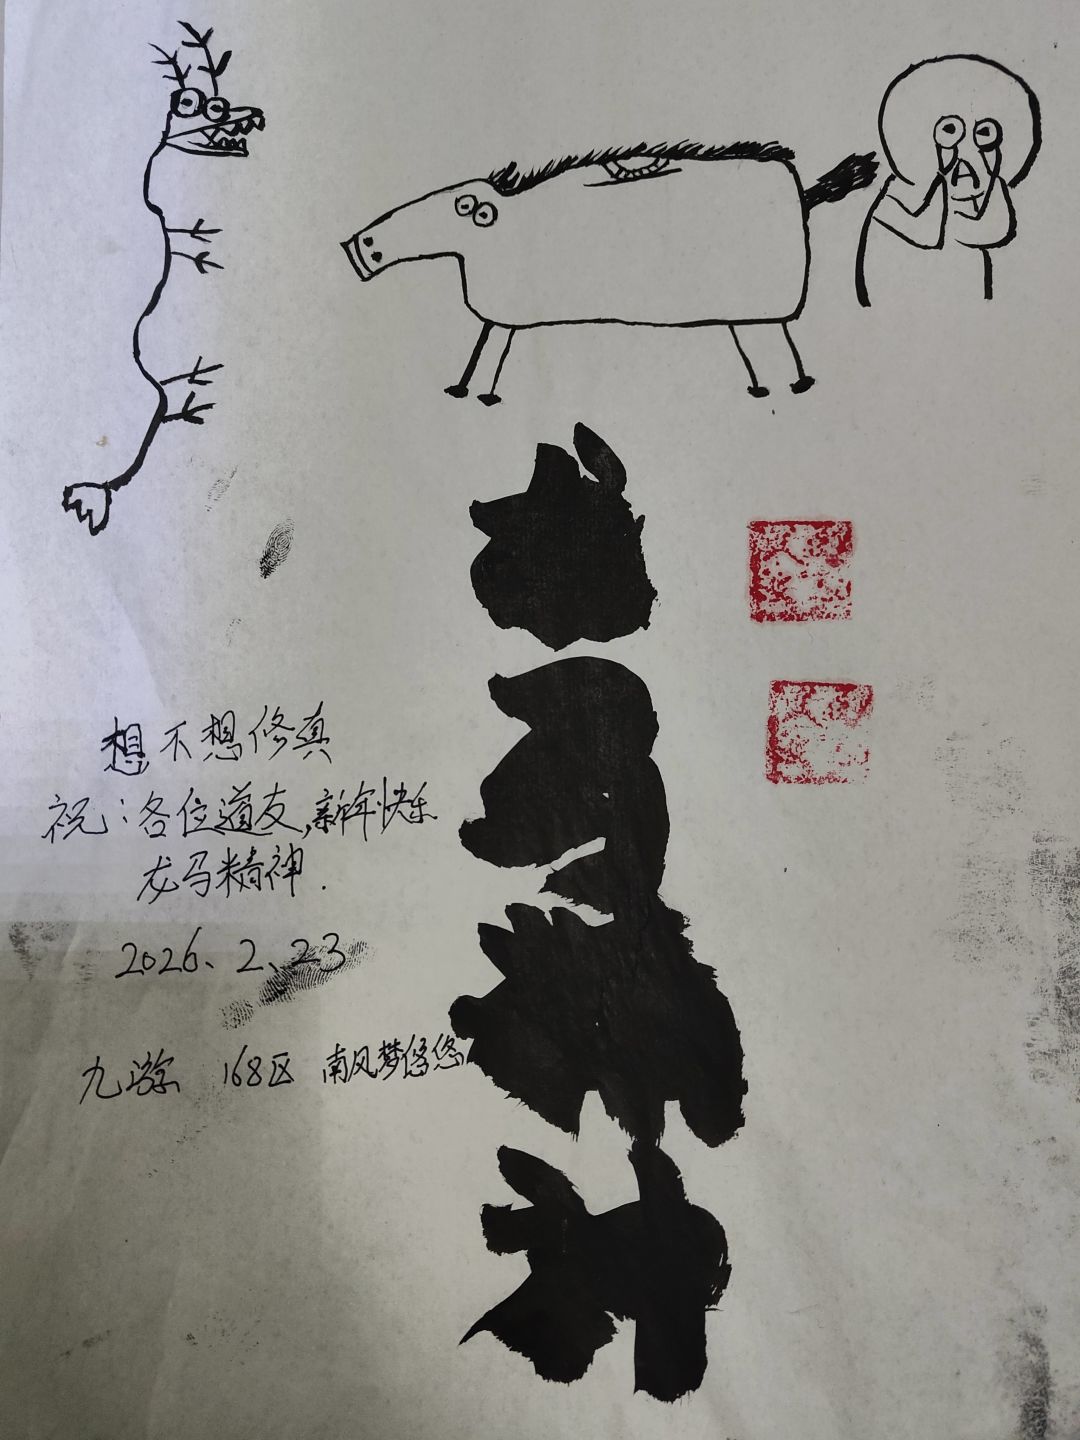 想不想修真
祝：各位道友，新年快乐
龙马精神．
2026、2、23
九游 168区 南风梦悠悠
龙马精神